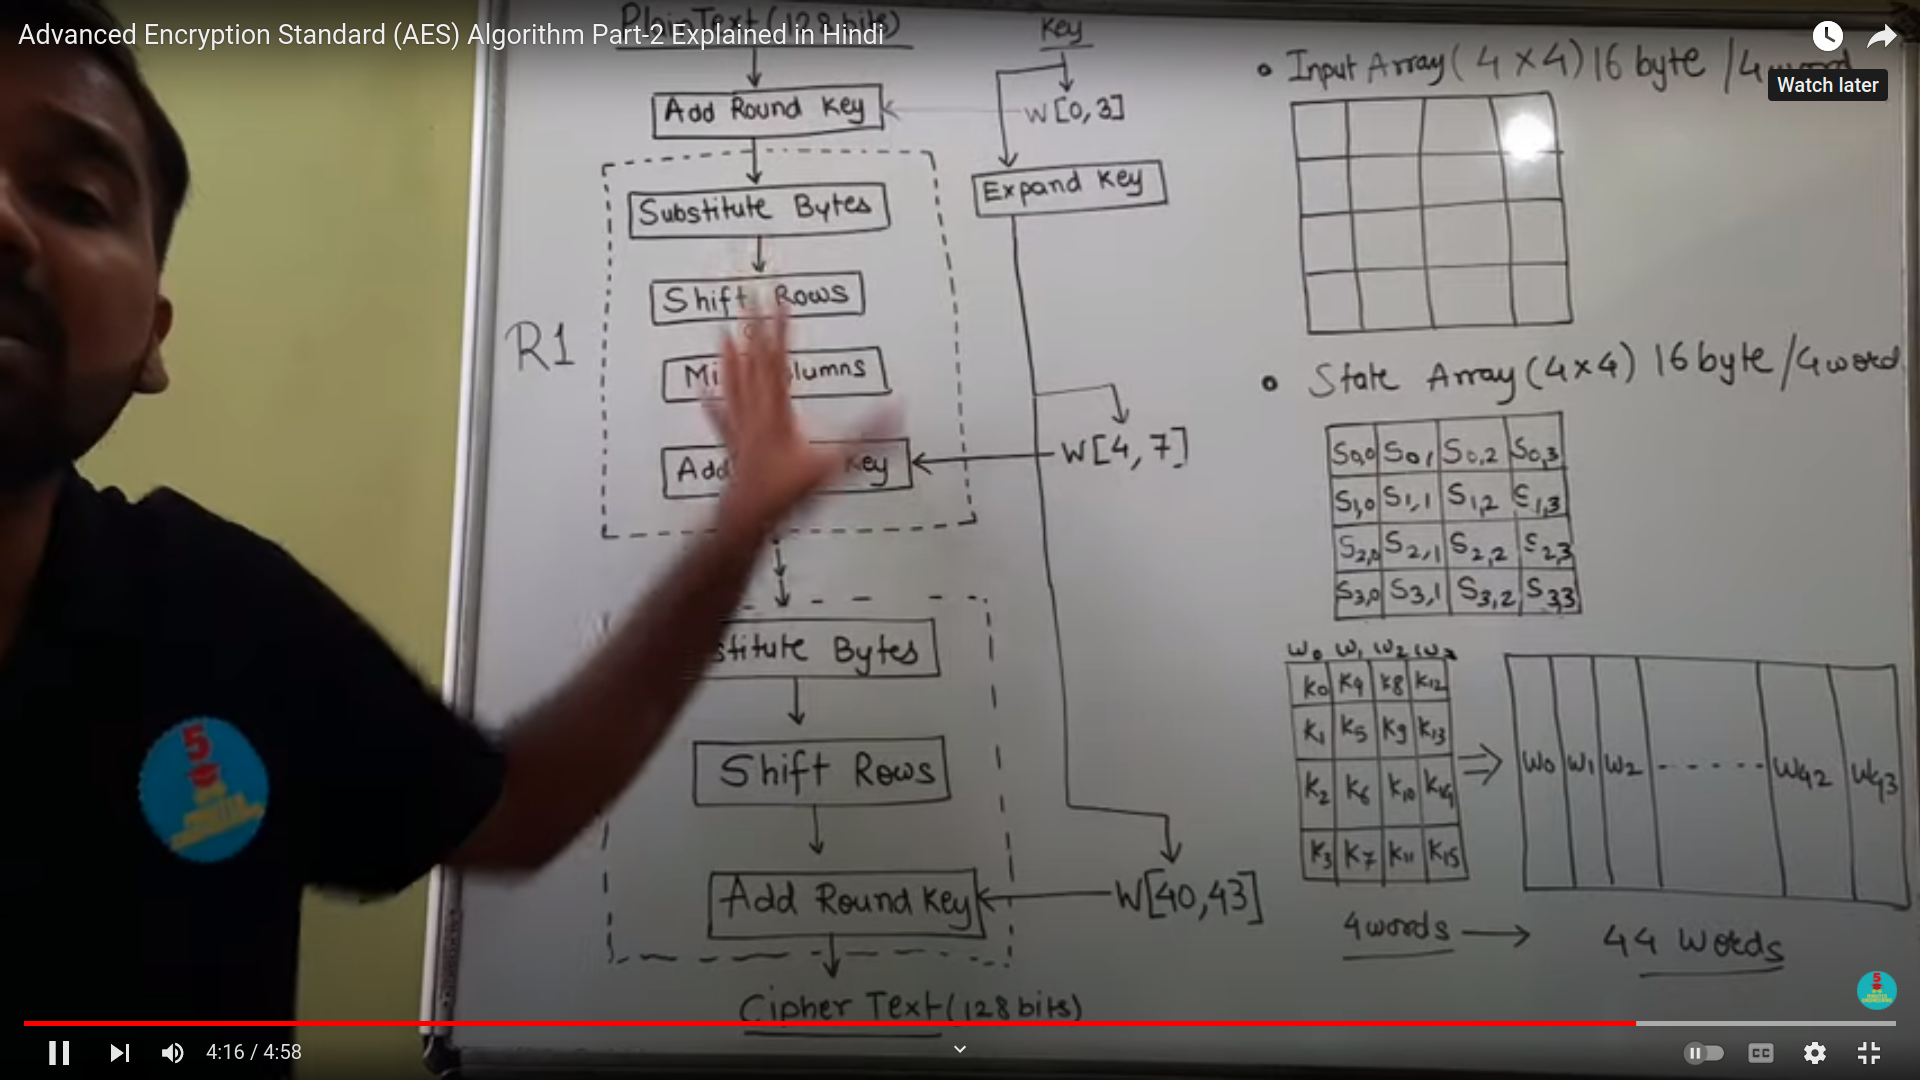 Advanced Encryption Standard (AES) Algorithm Part-2 Explained in Hindi
Watch later
Plain Text (128 bits)
Add Round Key
Substitute Bytes
Shift Rows
R1
Key
Substitute Bytes
Shift Rows
Add Round Key
Cipher Text (128 bits)
Key
W[0,3]
Expand Key
W[4,7]
W[40,43]
• Input Array (4 x 4) 16 byte / 4 word
• State Array (4x4) 16 byte / 4 word
S0,0 S0,1 S0,2 S0,3
S1,0 S1,1 S1,2 S1,3
S2,0 S2,1 S2,2 S2,3
S3,0 S3,1 S3,2 S3,3
W0 W1 W2 W3
K0 K4 K8 K12
K1 K5 K9 K13
K2 K6 K10 K14
K3 K7 K11 K15
W0 W1 W2 ------ W42 W43
4 words → 44 Words
5
4:16 / 4:58
CC